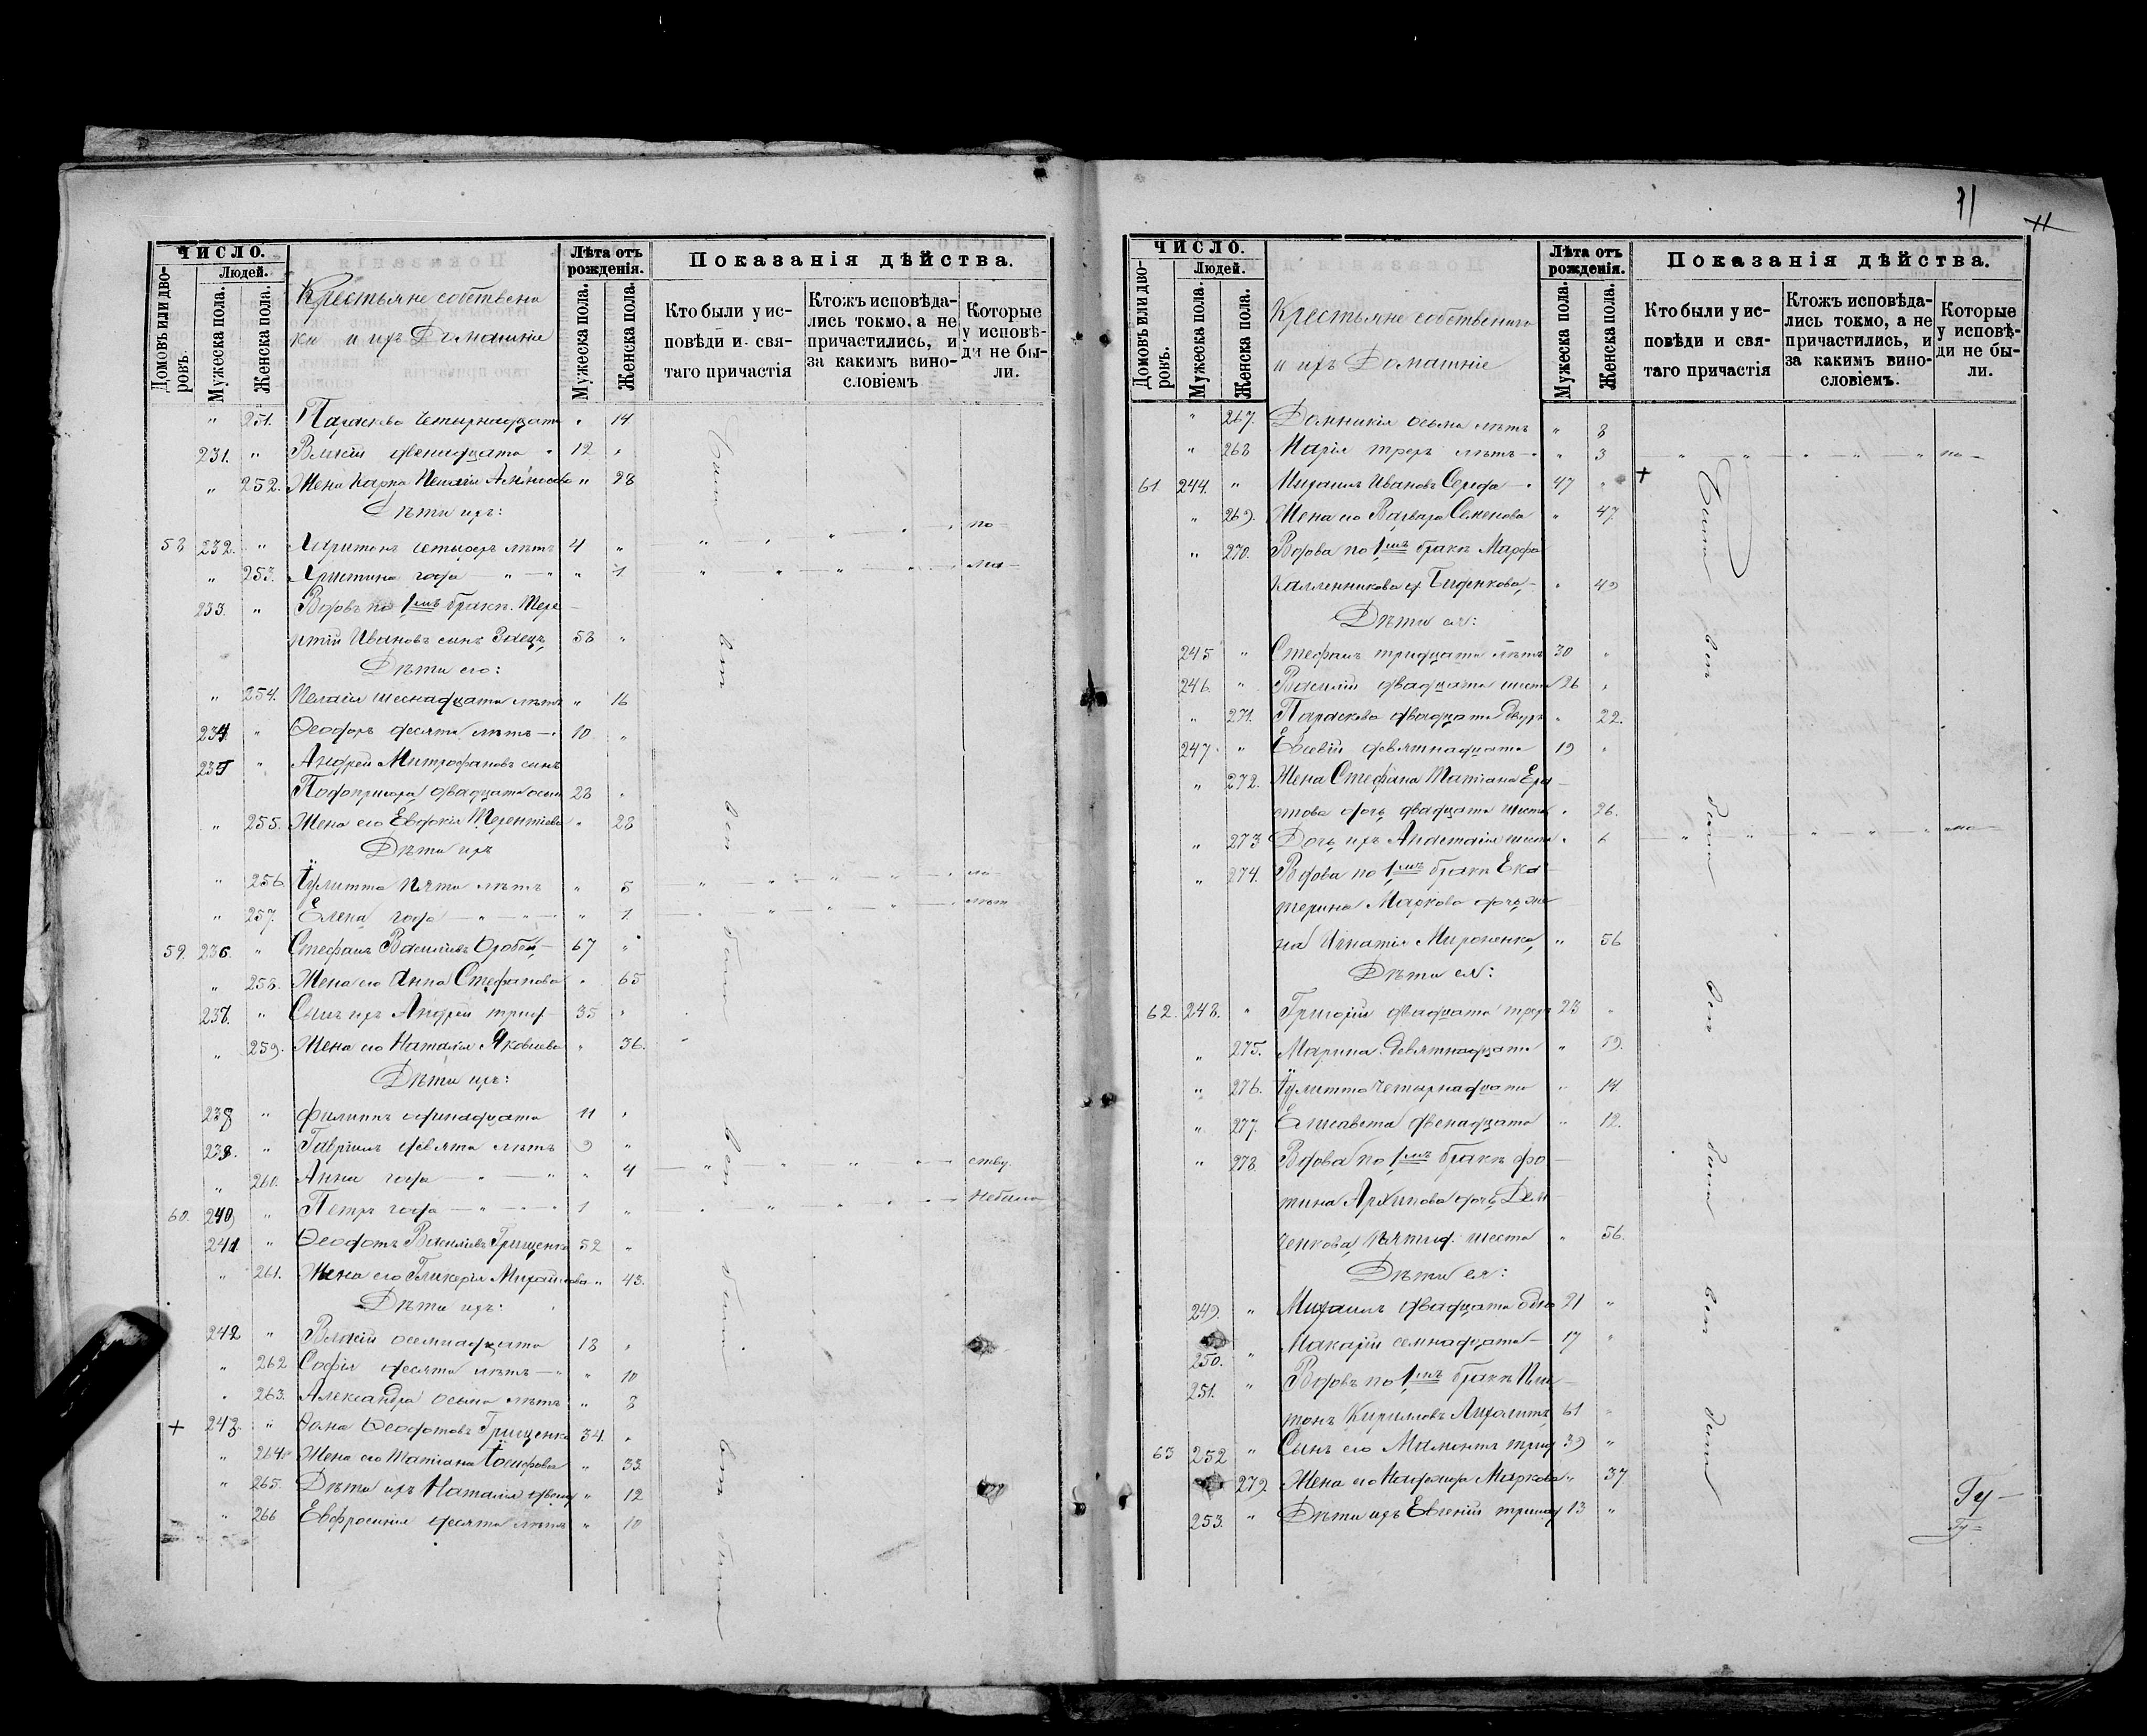 11
ЧИСЛО.
Людей.
Домовъ или дворовъ.
Мужеска пола.
Женска пола.
Крестьяне собствени
ки и ихъ Домашніе
Лѣта отъ рожденія.
Мужеска пола.
Женска пола.
Показанія дѣйства.
Кто были у ис-
повѣди и свя-
таго причастія
Ктожъ исповѣда-
лись токмо, а не
причастились, и
за какимъ вино-
словіемъ
Которые
у исповѣ-
ди не бы-
ли.
" 251. Параскева четырнадцати " 14
231. " Власій двенадцати " 12 "
" 252. Жена Карпа Пелагія " 28
Дѣти ихъ:
58 232. " Харитонъ четырехъ лѣтъ 4 " по-
" 253. Христина года " " 1 ма-
233. " Вдовъ по 1мъ бракѣ Тере
нтій Ивановъ сынъ Заецъ 58 "
Дѣти его:
" 254. Пелагія шеснадцати лѣтъ " 16
234 " Ѳеодоръ десяти лѣтъ 10 "
235 " Андрей Митрофановъ сынъ
Подопригора двадцати осьми 28 "
" 255. Жена его Евдокія Терентіева " 28
Дѣти ихъ
" 256. Іулитта пяти лѣтъ " 5
" 257. Елена года " 1
59. 236. " Стефанъ Васильевъ 67 "
" 258. Жена его Анна Стефанова " 65
237. " Сынъ ихъ Андрей трид 35 "
" 259. Жена его Наталія Яковлева " 36.
Дѣти ихъ:
238 " Филиппъ одинадцати 11 "
239. " Гавріилъ девяти лѣтъ 9 "
" 260. Анна года " 4
60. 240 " Петръ года 1 "
241 " Ѳеодотъ Васильевъ Грищенко 52 "
" 261. Жена его Гликерія Михайлова " 43.
Дѣти ихъ:
242 " Власій осемнадцати 18 "
" 262 Софія десяти лѣтъ " 10
" 263. Александра осьми лѣтъ " 8
+ 243. " Ѳома Ѳеодотовъ Грищенко 34. "
" 264. Жена его Татіана Іосифова " 33
" 265. Дѣти ихъ Наталія двенад " 12
" 266 Евфросинія десяти лѣтъ " 10
ЧИСЛО.
Людей.
Домовъ или дворовъ.
Мужеска пола.
Женска пола.
Крестьяне собственики
и ихъ Домашніе
Лѣта отъ рожденія.
Мужеска пола.
Женска пола.
Показанія дѣйства.
Кто были у ис-
повѣди и свя-
таго причастія
Ктожъ исповѣда-
лись токмо, а не
причастились, и
за какимъ вино-
словіемъ.
Которые
у исповѣ-
ди не бы-
ли.
" 267. Домникія осьми лѣтъ " 8
" 268 Марія трехъ лѣтъ " 3 по-
61 244. " Михаилъ Ивановъ Середа 47 " +
" 269. Жена его Варвара Семенова " 47
" 270. Вдова по 1мъ бракѣ Марфа
Каллениикова д. " 49
Дѣти ея:
245 " Стефанъ тридцати лѣтъ 30 "
246. " Василій двадцати шести 26 "
" 271. Параскева двадцати двухъ " 22.
247. " Евсевій девятнадцати 19 "
" 272. Жена Стефана Татіана Ера
стова дочь двадцати шести " 26.
" 273 Дочь ихъ Анастасія шести " 6
" 274. Вдова по 1мъ бракѣ Ека
терина Маркова дочь же
на Игнатія Мироненка " 56
Дѣти ея:
62. 248. " Григорій двадцати трехъ 23 "
" 275. Марина девятнадцати " 19.
" 276. Іулитта четырнадцати " 14
" 277. Елисавета двенадцати " 12.
" 278. Вдова по 1мъ бракѣ Фо
тина Архипова дочь Дем
ченкова пятид. шести " 56.
Дѣти ея:
249. " Михаилъ двадцати одно 21 "
250. " Макарій семнадцати 17 "
251. " Вдовъ по 1мъ бракѣ Пла
тонъ Кириловъ 61 "
63 252 " Сынъ его Мамонтъ трид 39 "
279. Жена его Надежда Маркова " 37
253. " Дѣти ихъ Евгеній тринад 13 "